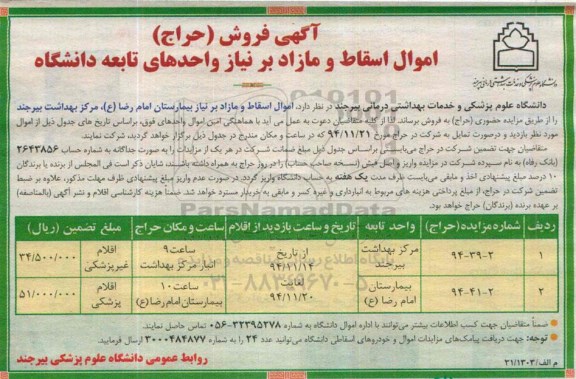 آگهی فروش (حراج)
اموال اسقاط و مازاد بر نیاز واحدهای تابعه دانشگاه
دانشگاه علوم پزشکی و خدمات بهداشتی درمانی بیرجند در نظر دارد، اموال اسقاط و مازاد بر نیاز بیمارستان امام رضا (ع)، مرکز بهداشت بیرجند
را از طریق مزایده حضوری (حراج) به فروش برساند. لذا از کلیه متقاضیان دعوت به عمل می آید با هماهنگی امین اموال واحدهای فوق، براساس تاریخ های جدول ذیل از اموال
مورد نظر بازدید و درصورت تمایل به شرکت در حراج مورخ ۹۴/۱۱/۲۱ که در ساعت و مکان مندرج در جدول ذیل برگزار خواهد گردید، شرکت نمایند.
متقاضیان جهت تضمین شرکت در حراج می بایستی براساس جدول ذیل مبلغ ضمانت شرکت در هر یک از مزایدات را به صورت جداگانه به شماره حساب ۲۶۴۳۸۵۶
(بانک رفاه) به نام سپرده شرکت در مزایده واریز و اصل فیش (نسخه صاحب حساب) را در روز حراج به همراه داشته باشند. شایان ذکر است فی المجلس از برنده یا برندگان
۱۰ درصد مبلغ پیشنهادی اخذ و مابقی می بایست ظرف مدت یک هفته به حساب دانشگاه واریز گردد. در صورت عدم واریز مبلغ پیشنهادی ظرف مهلت مذکور، علاوه بر ضبط
تضمین شرکت در حراج، از مبلغ پرداختی هزینه های مربوط به انبارداری و غیره کسر و مابقی به خریدار مسترد خواهد شد. ضمناً هزینه کارشناسی اقلام و نشر آگهی (بالمناصفه)
بر عهده برنده (برندگان) حراج خواهد بود.
ParsNamadData
ردیف شماره مزایده (حراج) واحد تابعه تاریخ و ساعت بازدید از اقلام ساعت و مکان حراج مبلغ تضمین (ریال)
۱ ۹۴-۳۹-۲ مرکز بهداشت بیرجند از تاریخ ۹۴/۱۱/۱۴ ساعت ۹ انبار مرکز بهداشت اقلام غیرپزشکی ۳۴/۵۰۰/۰۰۰
۲ ۹۴-۴۱-۲ بیمارستان امام رضا (ع) لغایت ۹۴/۱۱/۲۰ ساعت ۱۰ بیمارستان امام رضا (ع) اقلام پزشکی ۵۱/۰۰۰/۰۰۰
ضمناً متقاضیان جهت کسب اطلاعات بیشتر می توانند با اداره اموال دانشگاه به شماره ۳۲۳۹۵۲۷۸-۰۵۶ تماس حاصل نمایند.
توجه: جهت دریافت پیامک های مزایدات اموال و خودروهای اسقاطی دانشگاه می توانید عدد ۲۴ را به شماره ۳۰۰۰۴۸۴۸۷۷ ارسال فرمایید.
روابط عمومی دانشگاه علوم پزشکی بیرجند
م الف/ ۳۱/۱۳۰۳